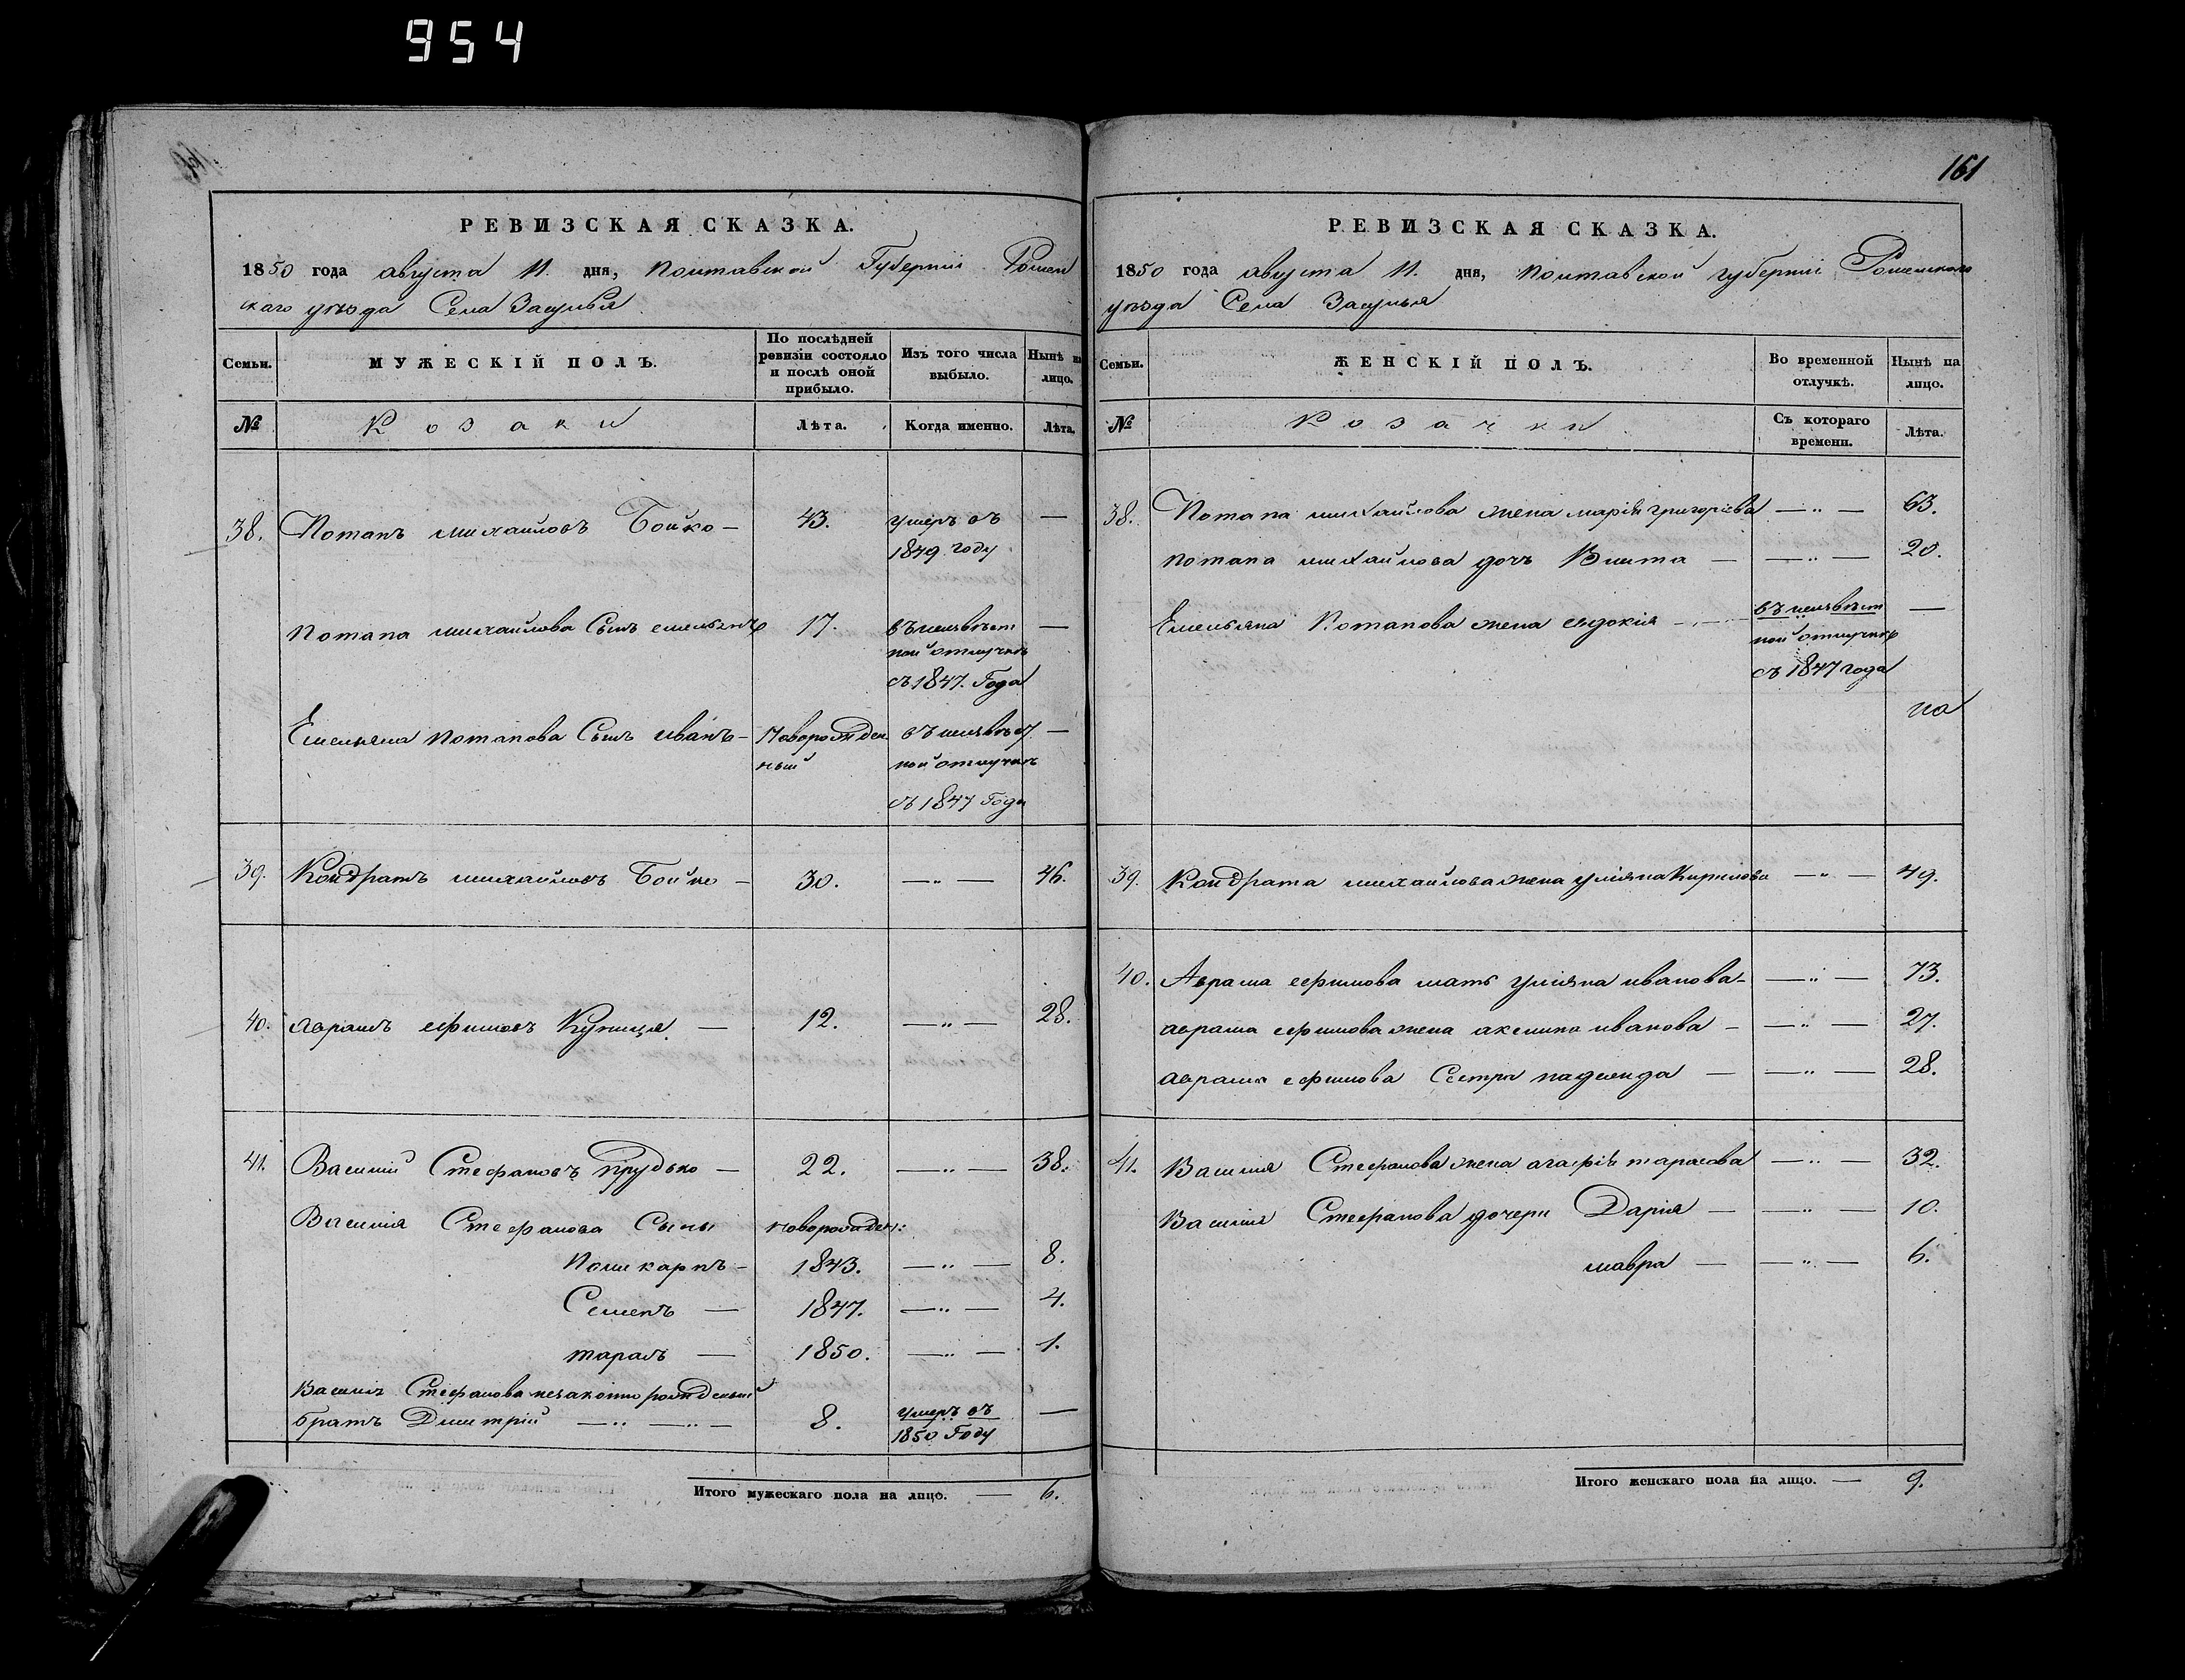 954
161
РЕВИЗСКАЯ СКАЗКА.
1850 года августа 11. дня, Полтавской Губерніи Ромен
скаго уѣзда Села Засулья
Семьи.
МУЖЕСКІЙ ПОЛЪ.
По послѣдней ревизіи состояло и послѣ оной прибыло.
Изъ того числа выбыло.
Нынѣ на лицо.
№
Козаки
Лѣта.
Когда именно.
Лѣта.
38. Потапъ михайловъ Бойко — 43. умеръ въ —
1849 году
потапа михайлова Сынъ емельянъ 17. въ неизвѣст —
ной отлучкѣ
съ 1847. Года
Емельяна потапова Сынъ иванъ — Новорожден въ неизвѣст —
ный ной отлучкѣ
съ 1847 Года
39. Кондратъ михайловъ Бойко — 30. — „ — 46.
40. аврамъ ефимовъ Куница — 12. — „ — 28.
41. Василий Стефановъ прудько — 22. — „ — 38.
Василія Стефанова Сыны новорожден:
поликарпъ — 1843. — „ — 8.
Семенъ — 1847. — „ — 4.
тарасъ — 1850. — „ — 1.
Василія Стефанова незаконно рожденный
братъ Дмитрій — „ — „ — 8. умеръ въ —
1850 Году
Итого мужескаго пола на лицо. — 6.
РЕВИЗСКАЯ СКАЗКА.
1850 года августа 11. дня, полтавской губерніи Роменскаго
уѣзда Села Засулья
Семьи.
ЖЕНСКІЙ ПОЛЪ.
Во временной отлучкѣ.
Нынѣ на лицо.
№
Козачки
Съ котораго времени.
Лѣта.
38. Потапа михайлова жена марія григорієва — „ — 63.
потапа михайлова дочь — — „ — 20.
Емельяна Потапова жена евдокия — въ неизвѣст —
ной отлучкѣ
съ 1847 года
на
39. Кондрата михайлова жена уліяна Кирилова — „ — 49.
40. Аврама ефимова мать уліяна иванова — — „ — 73.
аврама ефимова жена акелина иванова — — „ — 27.
аврама ефимова Сестра надежда — — „ — 28.
41. Василия Стефанова жена агафія тарасова — „ — 32.
Василия Стефанова дочери Дарія — — „ — 10.
мавра — — „ — 6.
Итого женскаго пола на лицо. — 9.